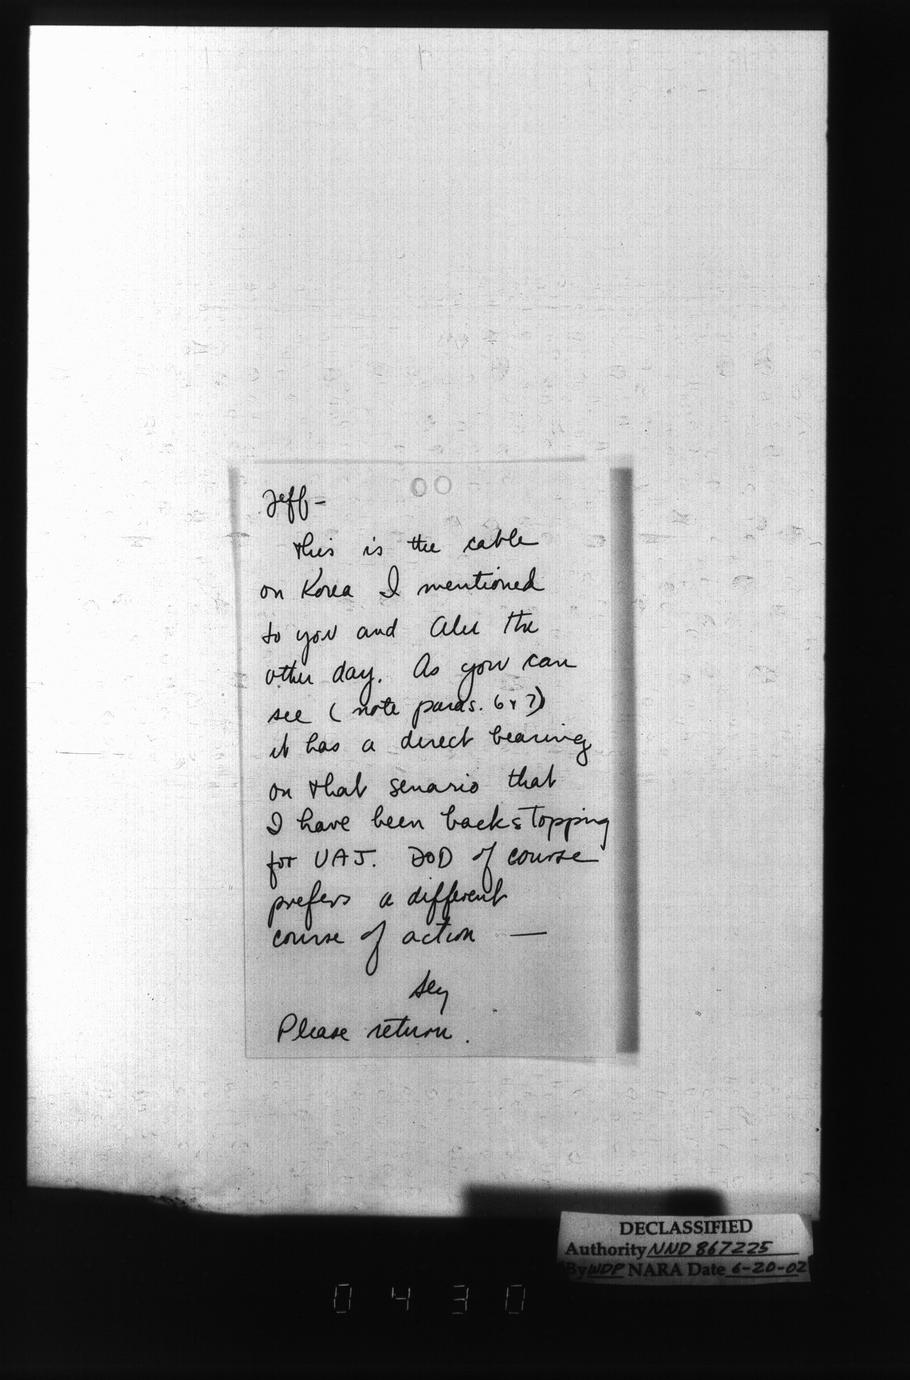 Jeff-
this is the cable
on Korea I mentioned
to you and Alex the
other day. As you can
see (note paras. 6 & 7)
it has a direct bearing
on that senario that
I have been backstopping
for UAJ. DOD of course
prefers a different
course of action —
Sey
Please return.
DECLASSIFIED
Authority NND 867225
By WDP NARA Date 6-20-02
0430